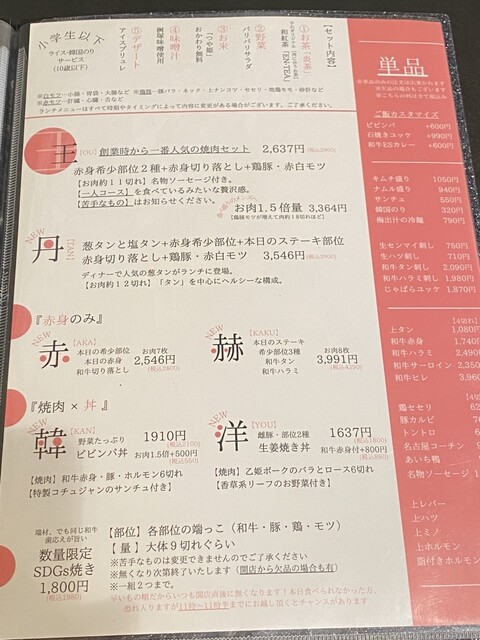 小学生以下
ライス・韓国のり
サービス
(10歳以下)
【セット内容】
①お茶(炎茶)
和紅茶「EN-TEA」
②野菜
パリパリサラダ
③お米
「つや姫」
おかわり無料
④味噌汁
桝塚味噌使用
⑤デザート
アイスブリュレ
※白モツ=小腸・胃袋・大腸など ※鶏豚=豚バラ・ネック・上ナンコツ・セセリ・地鶏モモ・砂肝など
※赤モツ=肝臓・心臓・舌など
ランチメニューはすべて時期やタイミングによって内容に変更がある場合がございます。ご了承ください。
王
【OU】創業時から一番人気の焼肉セット 2,637円
赤身希少部位2種+赤身切り落とし+鶏豚・赤白モツ
【お肉約11切れ】名物ソーセージ付き。
【一人コース】を食べているみたいな贅沢感。
【苦手なもの】はお知らせください。
お肉1.5倍量 3,364円
(鶏豚モツが増えて肉約18切れほど)
NEW
丹
【TAN】
葱タンと塩タン+赤身希少部位+本日のステーキ部位
赤身切り落とし+鶏豚・赤白モツ 3,546円
ディナーで人気の葱タンがランチに登場。
【お肉約12切れ】「タン」を中心にヘルシーな構成。
『赤身のみ』
NEW
赤
【AKA】
本日の希少部位
本日の赤身
和牛切り落とし
お肉7枚
2,546円
(税込2800)
NEW
赫
【KAKU】
本日のステーキ
希少部位3種
和牛タン
和牛ハラミ
お肉8枚
3,991円
(税込4390)
『焼肉×丼』
NEW
韓
【KAN】
野菜たっぷり
ビビンバ丼
1910円
(税込2100)
お肉1.5倍+500円
(税込550)
【焼肉】和牛赤身・豚・ホルモン6切れ
【特製コチュジャンのサンチュ付き】
NEW
洋
【YOU】
雌豚・部位2種
生姜焼き丼
1637円
(税込1800)
和牛赤身付+800円
(税込880)
【焼肉】乙姫ポークのバラとロース6切れ
【香草系リーフのお野菜付き】
端材、でも同じ和牛
歯応えが旨い
数量限定
SDGs焼き
1,800円
(税込1980)
【部位】各部位の端っこ(和牛・豚・鶏・モツ)
【 量 】大体9切れぐらい
※苦手なものは変更できませんのでご了承ください
※無くなり次第終了いたします(開店から欠品の場合も有)
※一組2つまで。
早いもの順だからいつも開店直後に無くなります!本日食べられなかった方、
恐れ入りますが11時〜11時半までにお越し頂くとチャンスがあります
単品
※単品のみの注文は出来かねます
※欠品の場合もございます
※こちらお税は全て税込み
ご飯カスタマイズ
ビビンバ +600円
石焼きユッケ +990円
和牛ESカレー +600円
キムチ盛り 1050円
ナムル盛り 940円
サンチュ 550円
韓国のり 320円
梅出汁の冷麺 790円
生センマイ刺し 750円
生ハツ刺し 710円
和牛タン刺し 2,090円
和牛ハラミ刺し 1,980円
じゃばらユッケ 1,870円
【4切れ】
上タン 1,080円
和牛赤身 1,740
和牛ハラミ 2,490
和牛サーロイン 2,350
和牛ヒレ 3,960
鶏セセリ
豚カルビ
トントロ
名古屋コーチン
あいち鴨
名物ソーセージ
上レバー
上ハツ
上ミノ
上ホルモン
脂付きホルモン